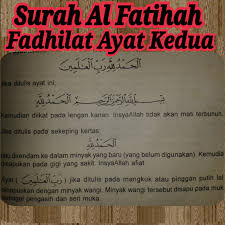 Surah Al Fatihah
Fadhilat Ayat Kedua
اَلْحَمْدُ لِلّٰهِ رَبِّ الْعٰلَمِيْنَ
Jika ditulis ayat ini,
بِسْمِ اللّٰهِ الرَّحْمٰنِ الرَّحِيْمِ اَلْحَمْدُ لِلّٰهِ
Kemudian diikat pada lengan kanan InsyaAllah tidak akan mati terbunuh.
Jika ditulis pada sekeping kertas:
اَلْحَمْدُ لِلّٰهِ
lalu direndam ke dalam minyak yang baru (yang belum digunakan). Kemudia
disapukan pada gigi yang sakit. InsyaAllah afiat
Ayat ( رَبِّ الْعٰلَمِيْنَ ) jika ditulis pada mangkuk atau pinggan putih lal
dihapuskan dengan minyak wangi. Minyak wangi tersebut disapu pada muk
pengasih dan seri muka.